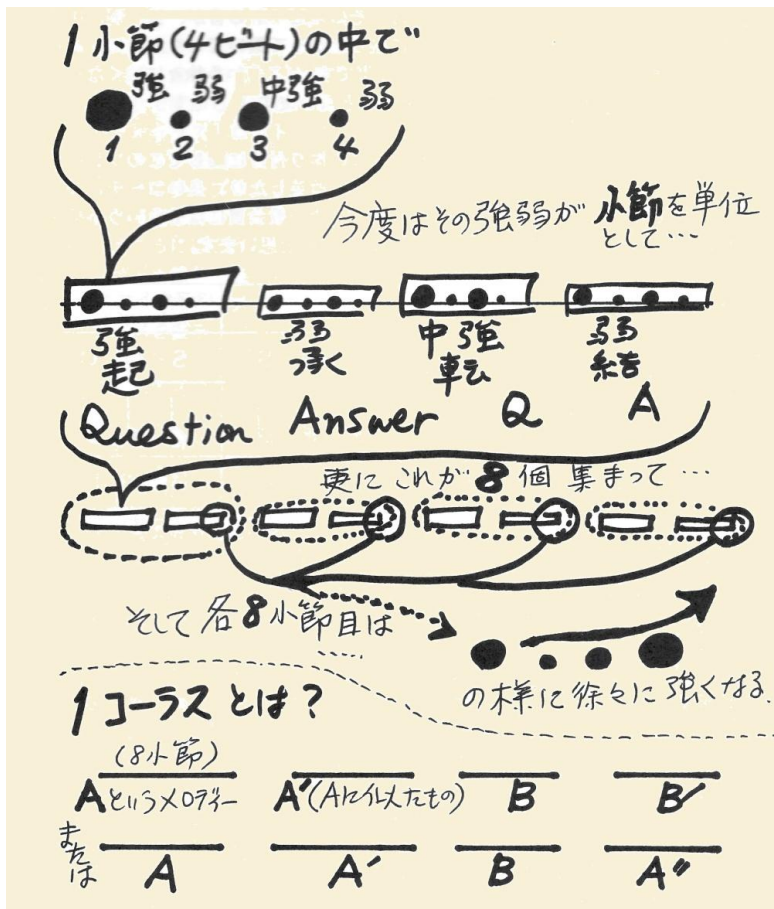 1小節(4ビート)の中で
強 弱 中強 弱
1 2 3 4
今度はその強弱が 小節を単位
として…
強 弱 中強 弱
起 承 転 結
Question Answer Q A
更に これが 8個 集まって…
そして 各8小節目は
……
の様に徐々に強くなる.
1コーラスとは?
(8小節)
Aというメロディー A'(Aに似たもの) B B'
または
A A' B A"